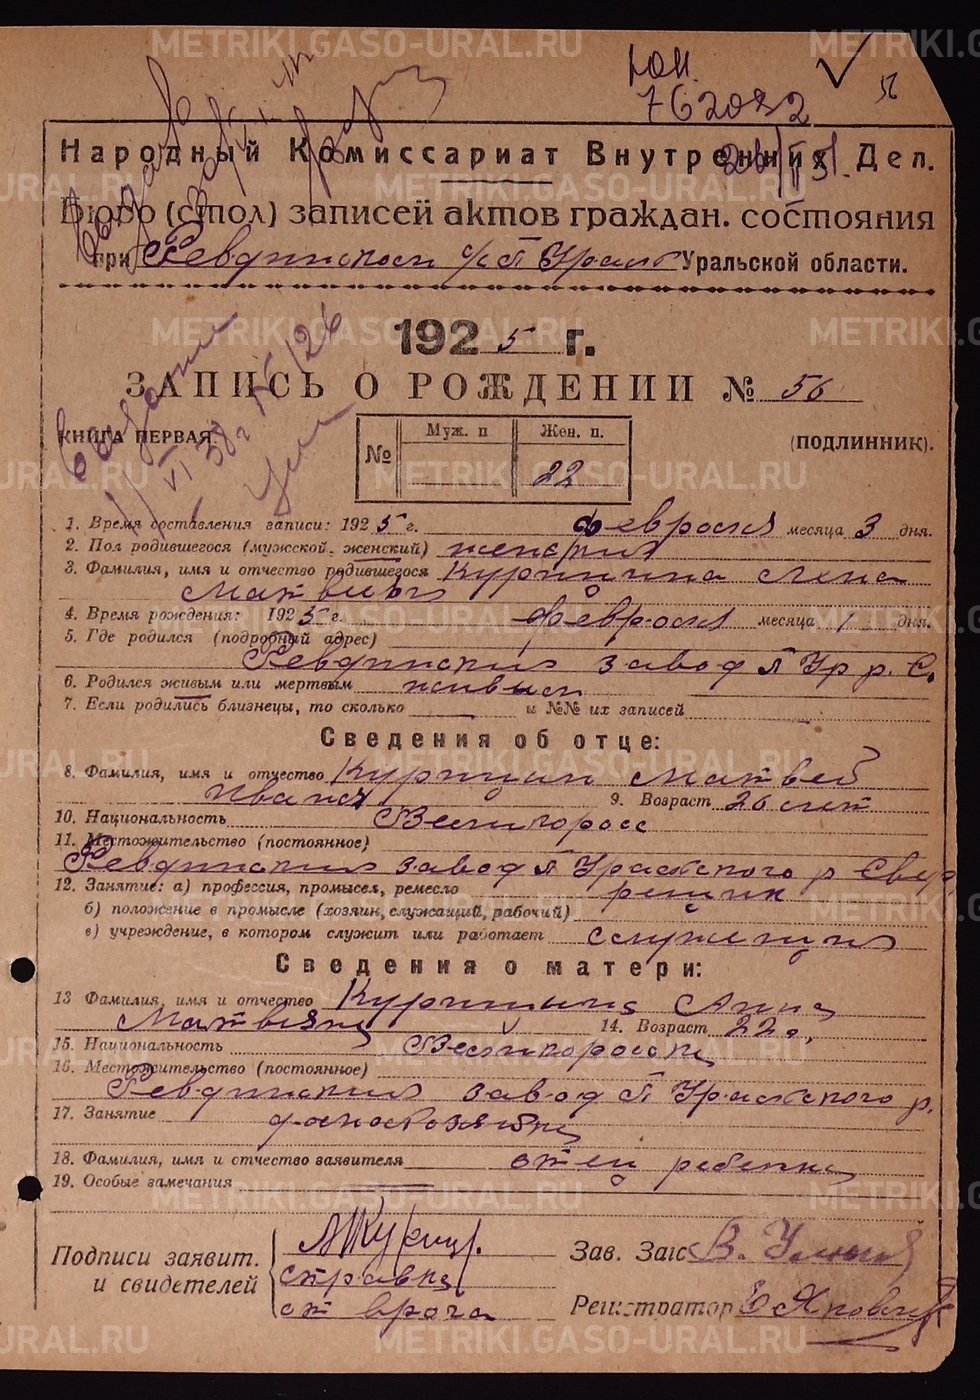 METRIKI.GASO-URAL.RU
762092
Народный Комиссариат Внутренних Дел.
Бюро (стол) записей актов граждан. состояния
при Ревдинском Уральской области.
1925 г.
ЗАПИСЬ О РОЖДЕНИИ № 56
КНИГА ПЕРВАЯ. (ПОДЛИННИК).
№ Муж. п Жен. п.
22
1. Время составления записи: 1925 г. февраля месяца 3 дня.
2. Пол родившегося (мужской, женский) женский
3. Фамилия, имя и отчество родившегося Курицина
4. Время рождения: 1925 г. февраля месяца 1 дня.
5. Где родился (подробный адрес)
Ревдинский завод
6. Родился живым или мертвым живым
7. Если родились близнецы, то сколько — и №№ их записей
Сведения об отце:
8. Фамилия, имя и отчество Курицин Матвей
Иванов 9. Возраст 26 лет
10. Национальность Великоросс
11. Местожительство (постоянное)
Ревдинский завод Уральского р
12. Занятие: а) профессия, промысел, ремесло
б) положение в промысле (хозяин, служащий, рабочий)
в) учреждение, в котором служит или работает служащий
Сведения о матери:
13 Фамилия, имя и отчество Курицина Анна
14. Возраст 22 г.
15. Национальность
16. Местожительство (постоянное)
Ревдинский завод Уральского р.
17. Занятие домохозяйка
18. Фамилия, имя и отчество заявителя отец ребенка
19. Особые замечания
Подписи заявит.
и свидетелей
справка
от врача
Зав. Загс
Регистратор